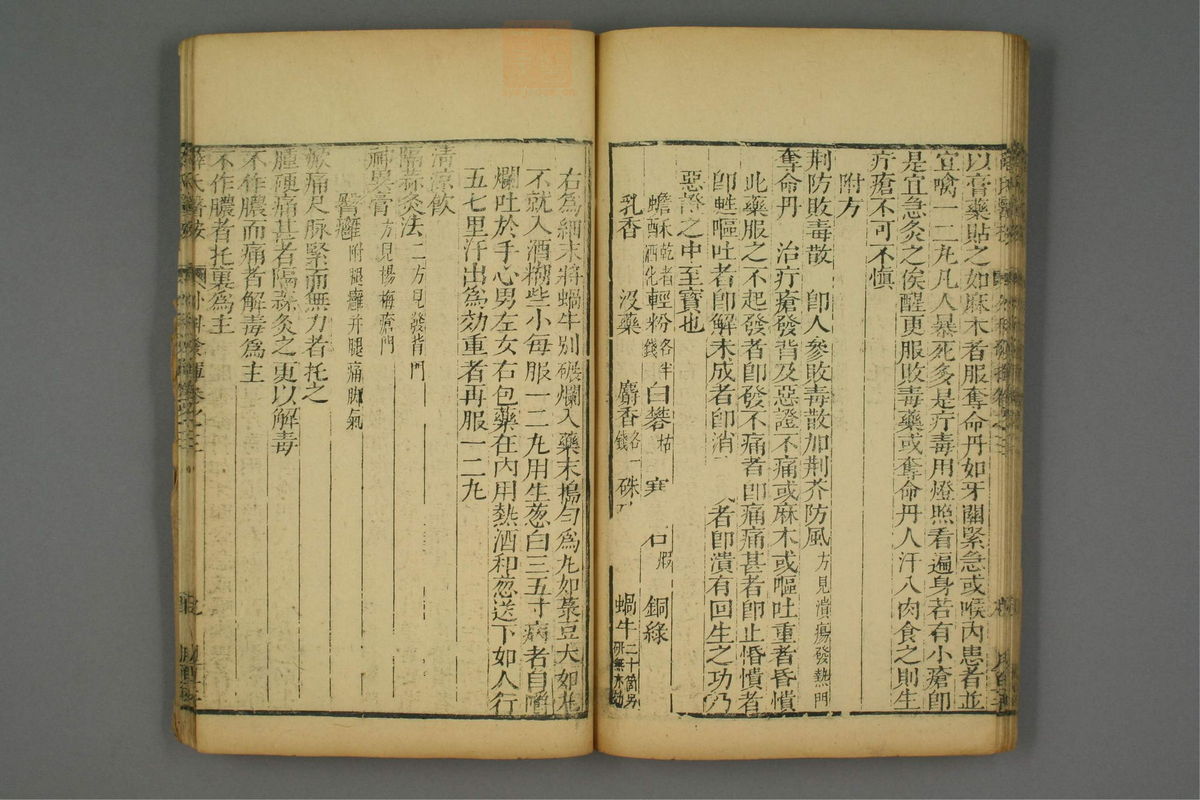 以膏藥貼之如麻木者服奪命丹如牙關緊急或喉內患者並
宜噙一二丸凡人暴死多是疔毒用燈照看遍身若有小瘡卽
是宜急灸之俟醒更服敗毒藥或奪命丹人汗入肉食之則生
疔瘡不可不愼
附方
荆防敗毒散 卽人參敗毒散加荆芥防風方見潰瘍發熱門
奪命丹 治疔瘡發背及惡證不痛或麻木或嘔吐重者昏憒
此藥服之不起發者卽發不痛者卽痛痛甚者卽止昏憒者
卽甦嘔吐者卽解未成者卽消 者卽潰有回生之功乃
惡證之中至寶也
蟾酥乾者酒化輕粉各半錢 白礬枯 寒 石煆 銅綠
乳香 沒藥 麝香各一錢 硃 蝸牛二十箇另研無亦効
右爲細末將蝸牛別碾爛入藥末搗勻爲丸如菉豆大如丸
不就入酒糊些小每服一二丸用生葱白三五寸病者自嚼
爛吐於手心男左女右包藥在內用熱酒和葱送下如人行
五七里汗出爲効重者再服一二丸
清涼飮
隔蒜灸法二方見發背門
神異膏方見楊梅瘡門
臀癰附腿癰幷腿痛脚氣
焮痛尺脉緊而無力者托之
腫硬痛甚者隔蒜灸之更以解毒
不作膿而痛者解毒爲主
不作膿者托裏爲主
薛氏醫按